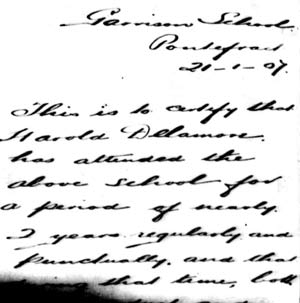 Garrison School
Pontefract
21-1-07.
This is to certify that
Harold Dellamore.
has attended the
above School for
a period of nearly
2 years regularly and
punctually, and that
during that time, both